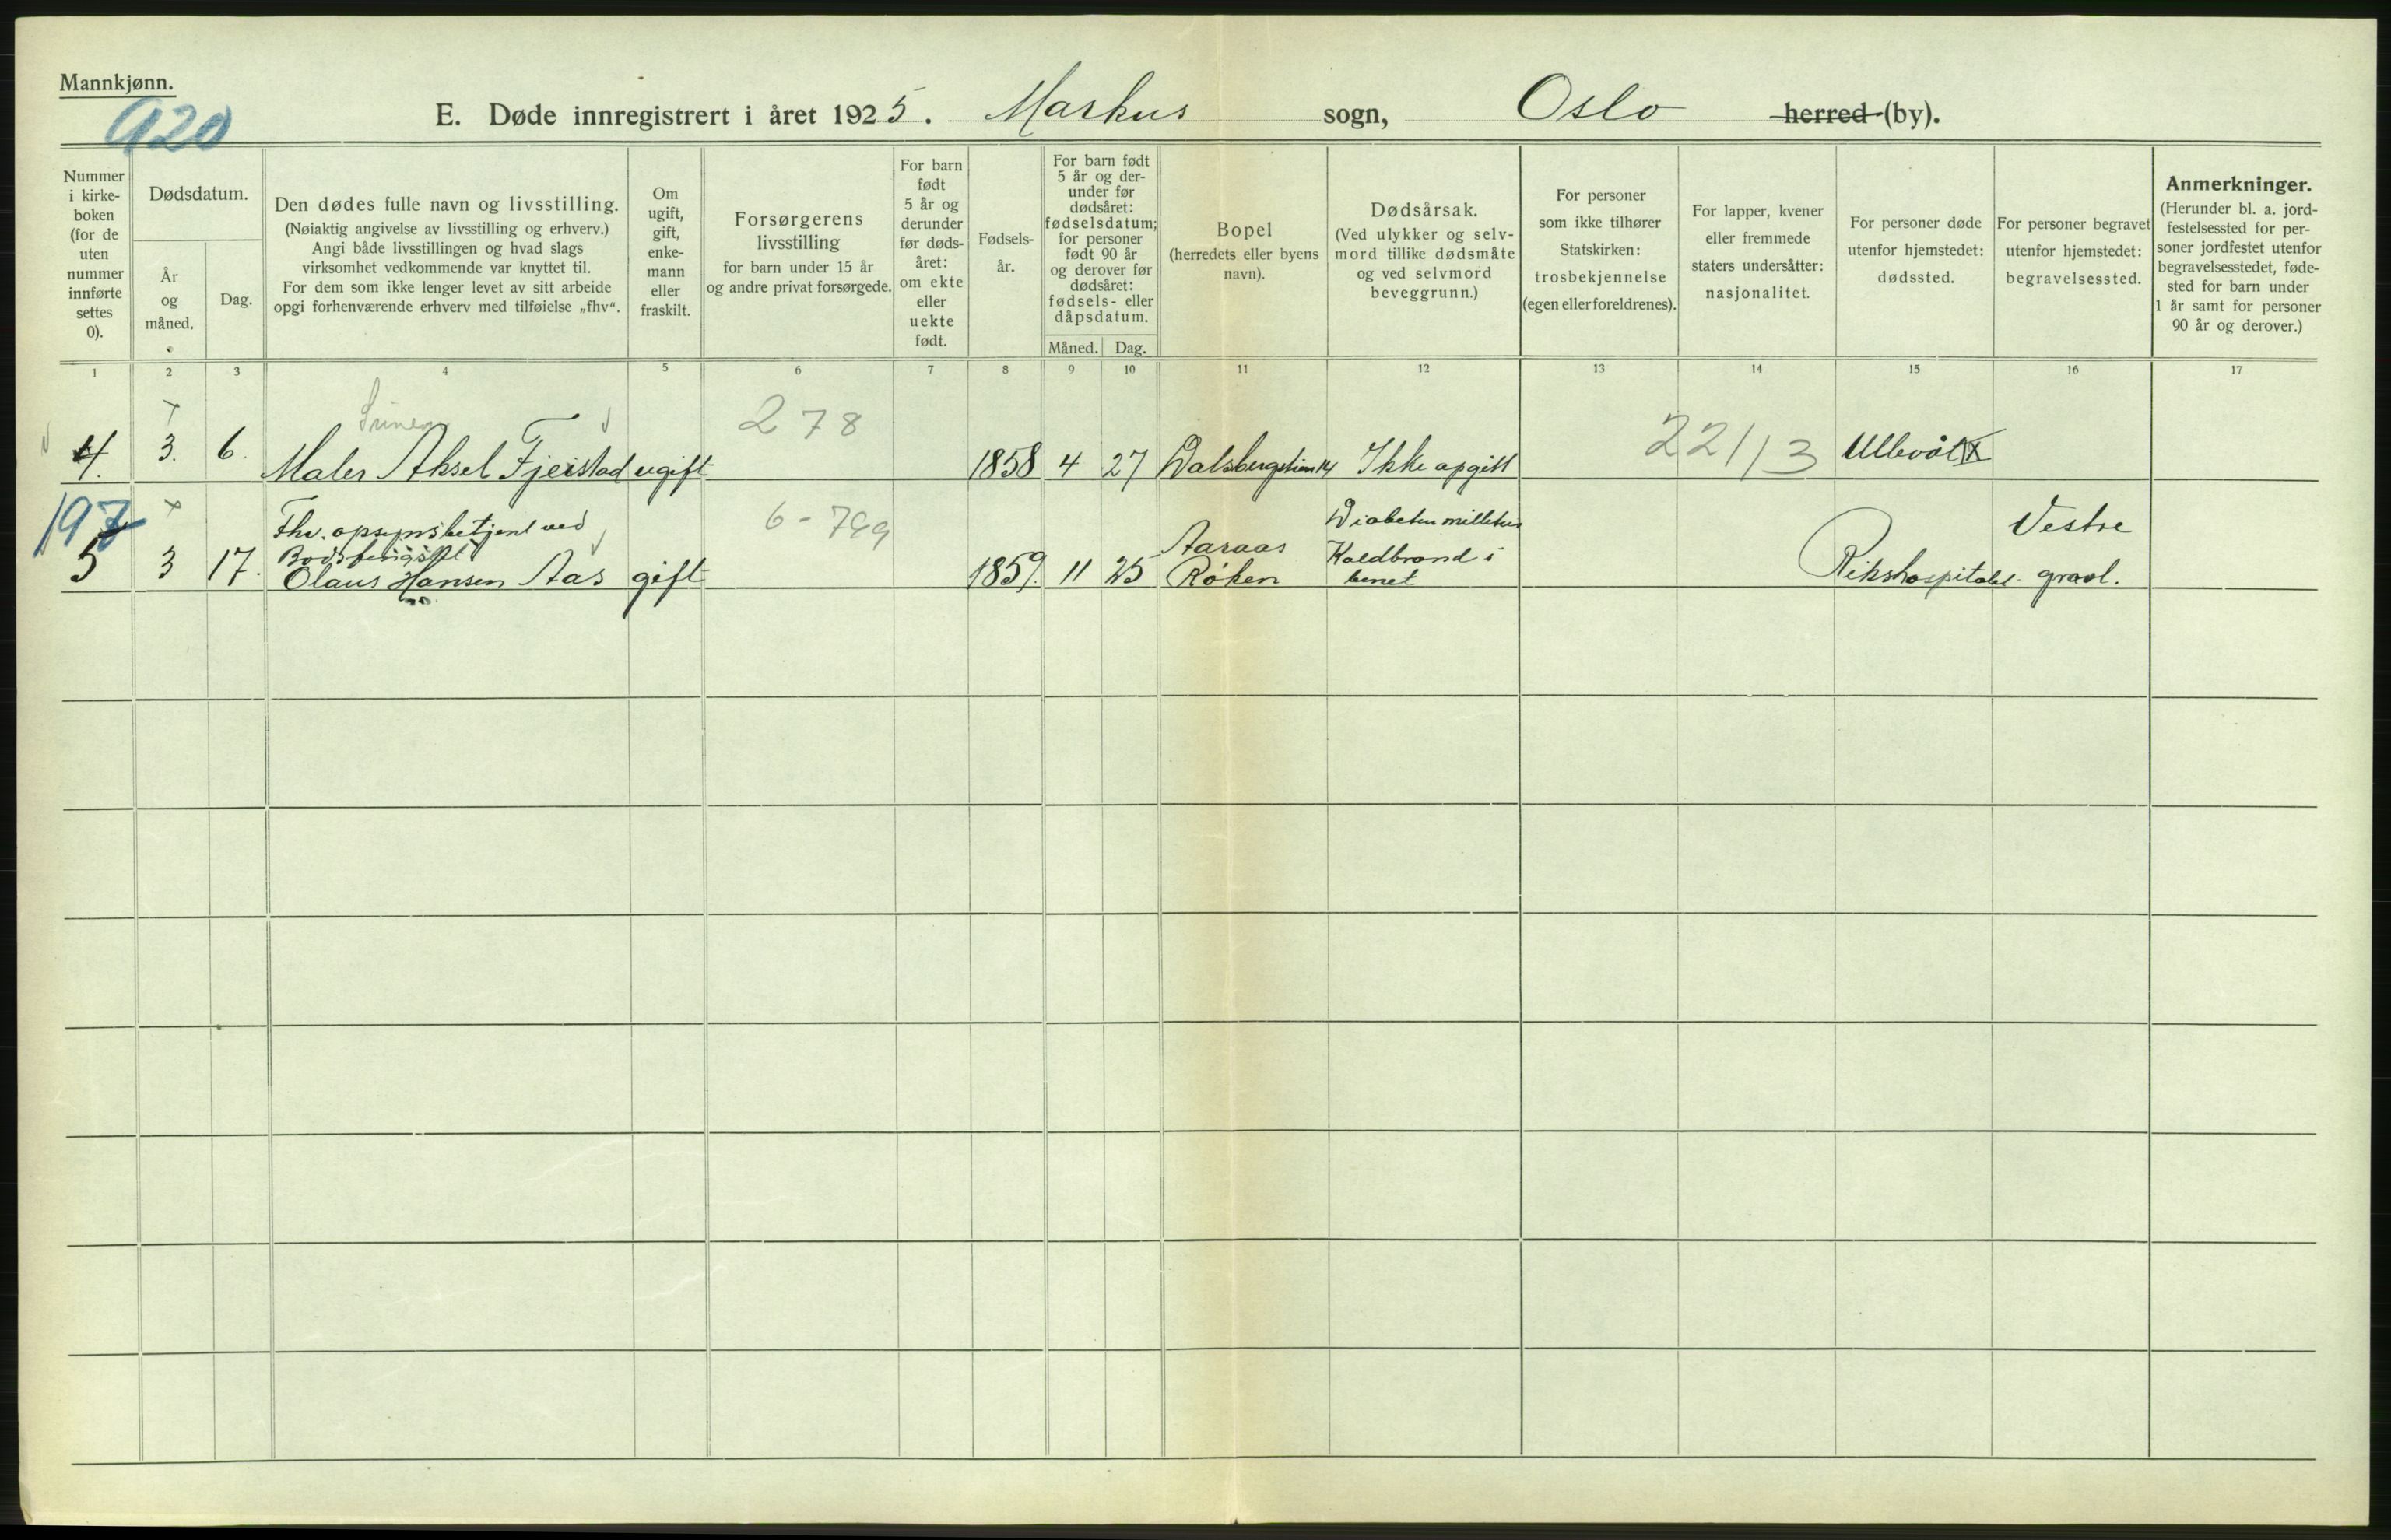 Mannkjønn.
920
E. Døde innregistrert i året 1925. Markus sogn, Oslo herred (by).
Nummer
i kirke-
boken
(for de
uten
nummer
innførte
settes
0).
Dødsdatum.
År
og
måned.
Dag.
Den dødes fulle navn og livsstilling.
(Nøiaktig angivelse av livsstilling og erhverv.)
Angi både livsstillingen og hvad slags
virksomhet vedkommende var knyttet til.
For dem som ikke lenger levet av sitt arbeide
opgi forhenværende erhverv med tilføielse „fhv“.
Om
ugift,
gift,
enke-
mann
eller
fraskilt.
Forsørgerens
livsstilling
for barn under 15 år
og andre privat forsørgede.
For barn
født
5 år og
derunder
før døds-
året:
om ekte
eller
uekte
født.
Fødsels-
år.
For barn født
5 år og der-
under før
dødsåret:
fødselsdatum;
for personer
født 90 år
og derover før
dødsåret:
fødsels- eller
dåpsdatum.
Måned. Dag.
Bopel
(herredets eller byens
navn).
Dødsårsak.
(Ved ulykker og selv-
mord tillike dødsmåte
og ved selvmord
beveggrunn.)
For personer
som ikke tilhører
Statskirken:
trosbekjennelse
(egen eller foreldrenes).
For lapper, kvener
eller fremmede
staters undersåtter:
nasjonalitet.
For personer døde
utenfor hjemstedet:
dødssted.
For personer begravet
utenfor hjemstedet:
begravelsessted.
Anmerkninger.
(Herunder bl. a. jord-
festelsessted for per-
soner jordfestet utenfor
begravelsesstedet, føde-
sted for barn under
1 år samt for personer
90 år og derover.)
1 2 3 4 5 6 7 8 9 10 11 12 13 14 15 16 17
278
22/13
4. 3. 6. Maler Aksel Fjeistad ugift 1858 4 27 14 Ikke opgitt Ullevål X
197
Fhv. opsynsbetjent ved
6-799
Diabetes mellitus
Vestre
Bodsfengslet
Aaraas
Koldbrand i
5 3 17. Olaus Hansen Aas gift 1859. 11 25 Røken benet Rikshospitalet gravl.